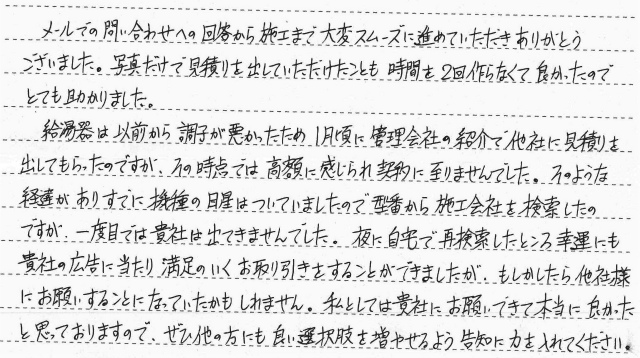 メールでの問い合わせへの回答から施工まで大変スムーズに進めていただきありがとう
ございました。写真だけで見積りを出していただけたことも時間を2回作らなくて良かったので
とても助かりました。
給湯器は以前から調子が悪かったため1月頃に管理会社の紹介で他社に見積りを
出してもらったのですが、その時点では高額に感じられ契約に至りませんでした。そのような
経違がありすでに機種の目星はついていましたので型番から施工会社を検索したの
ですが、一度目では貴社は出てきませんでした。夜に自宅で再検索したところ幸運にも
貴社の広告に当たり満足のいくお取り引きをすることができましたが、もしかしたら他社様
にお願いすることになっていたかもしれません。私としては貴社にお願いできて本当に良かった
と思っておりますので、ぜひ他の方にも良い選択肢を増やせるよう告知に力を入れてください。